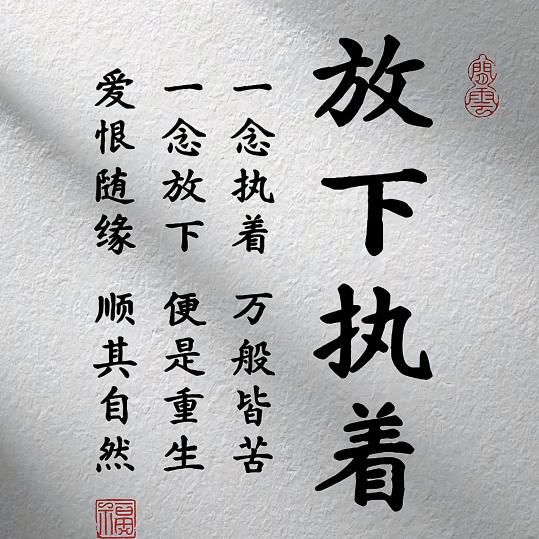 放下执着
一念执着 万般皆苦
一念放下 便是重生
爱恨随缘 顺其自然
福